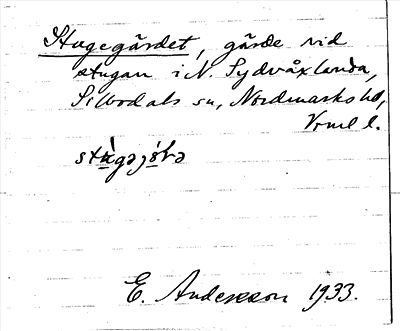 Stugegärdet, gärde vid
stugan i N. Sydväxlanda,
Silbodals sn, Nordmarks hd,
Vrml l.
E. Andersson 1933.